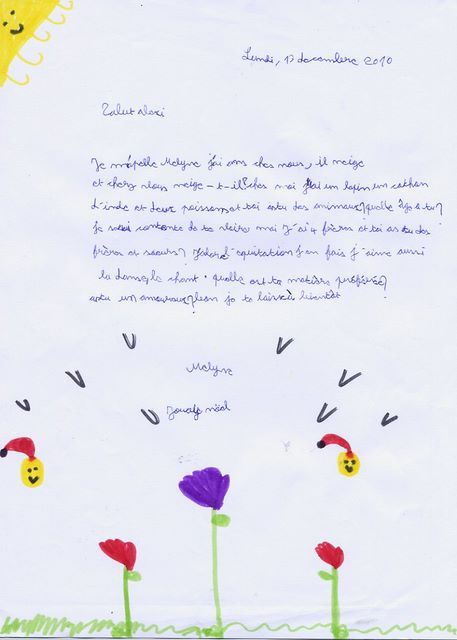 Lundi, 13 decembre 2010
Salut Alexi
Je m'apelle Melyne j'ai ans ches nous, il neige
et chez vous neige-t-il? ches moi j'ai un lapin un cochon
d'inde et deux poissons et toi as tu des animaux? quelle âge a tu?
je suis contente de te moi J'ai 4 frères et toi as tu des
frères et soeurs? J'adore l'equitation j'en fais j'aime aussi
la danse, le chant. quelle est ta matière préférée?
astu un amoureux? bon je te laisse à bientôt
Melyne
Joyeux nöel